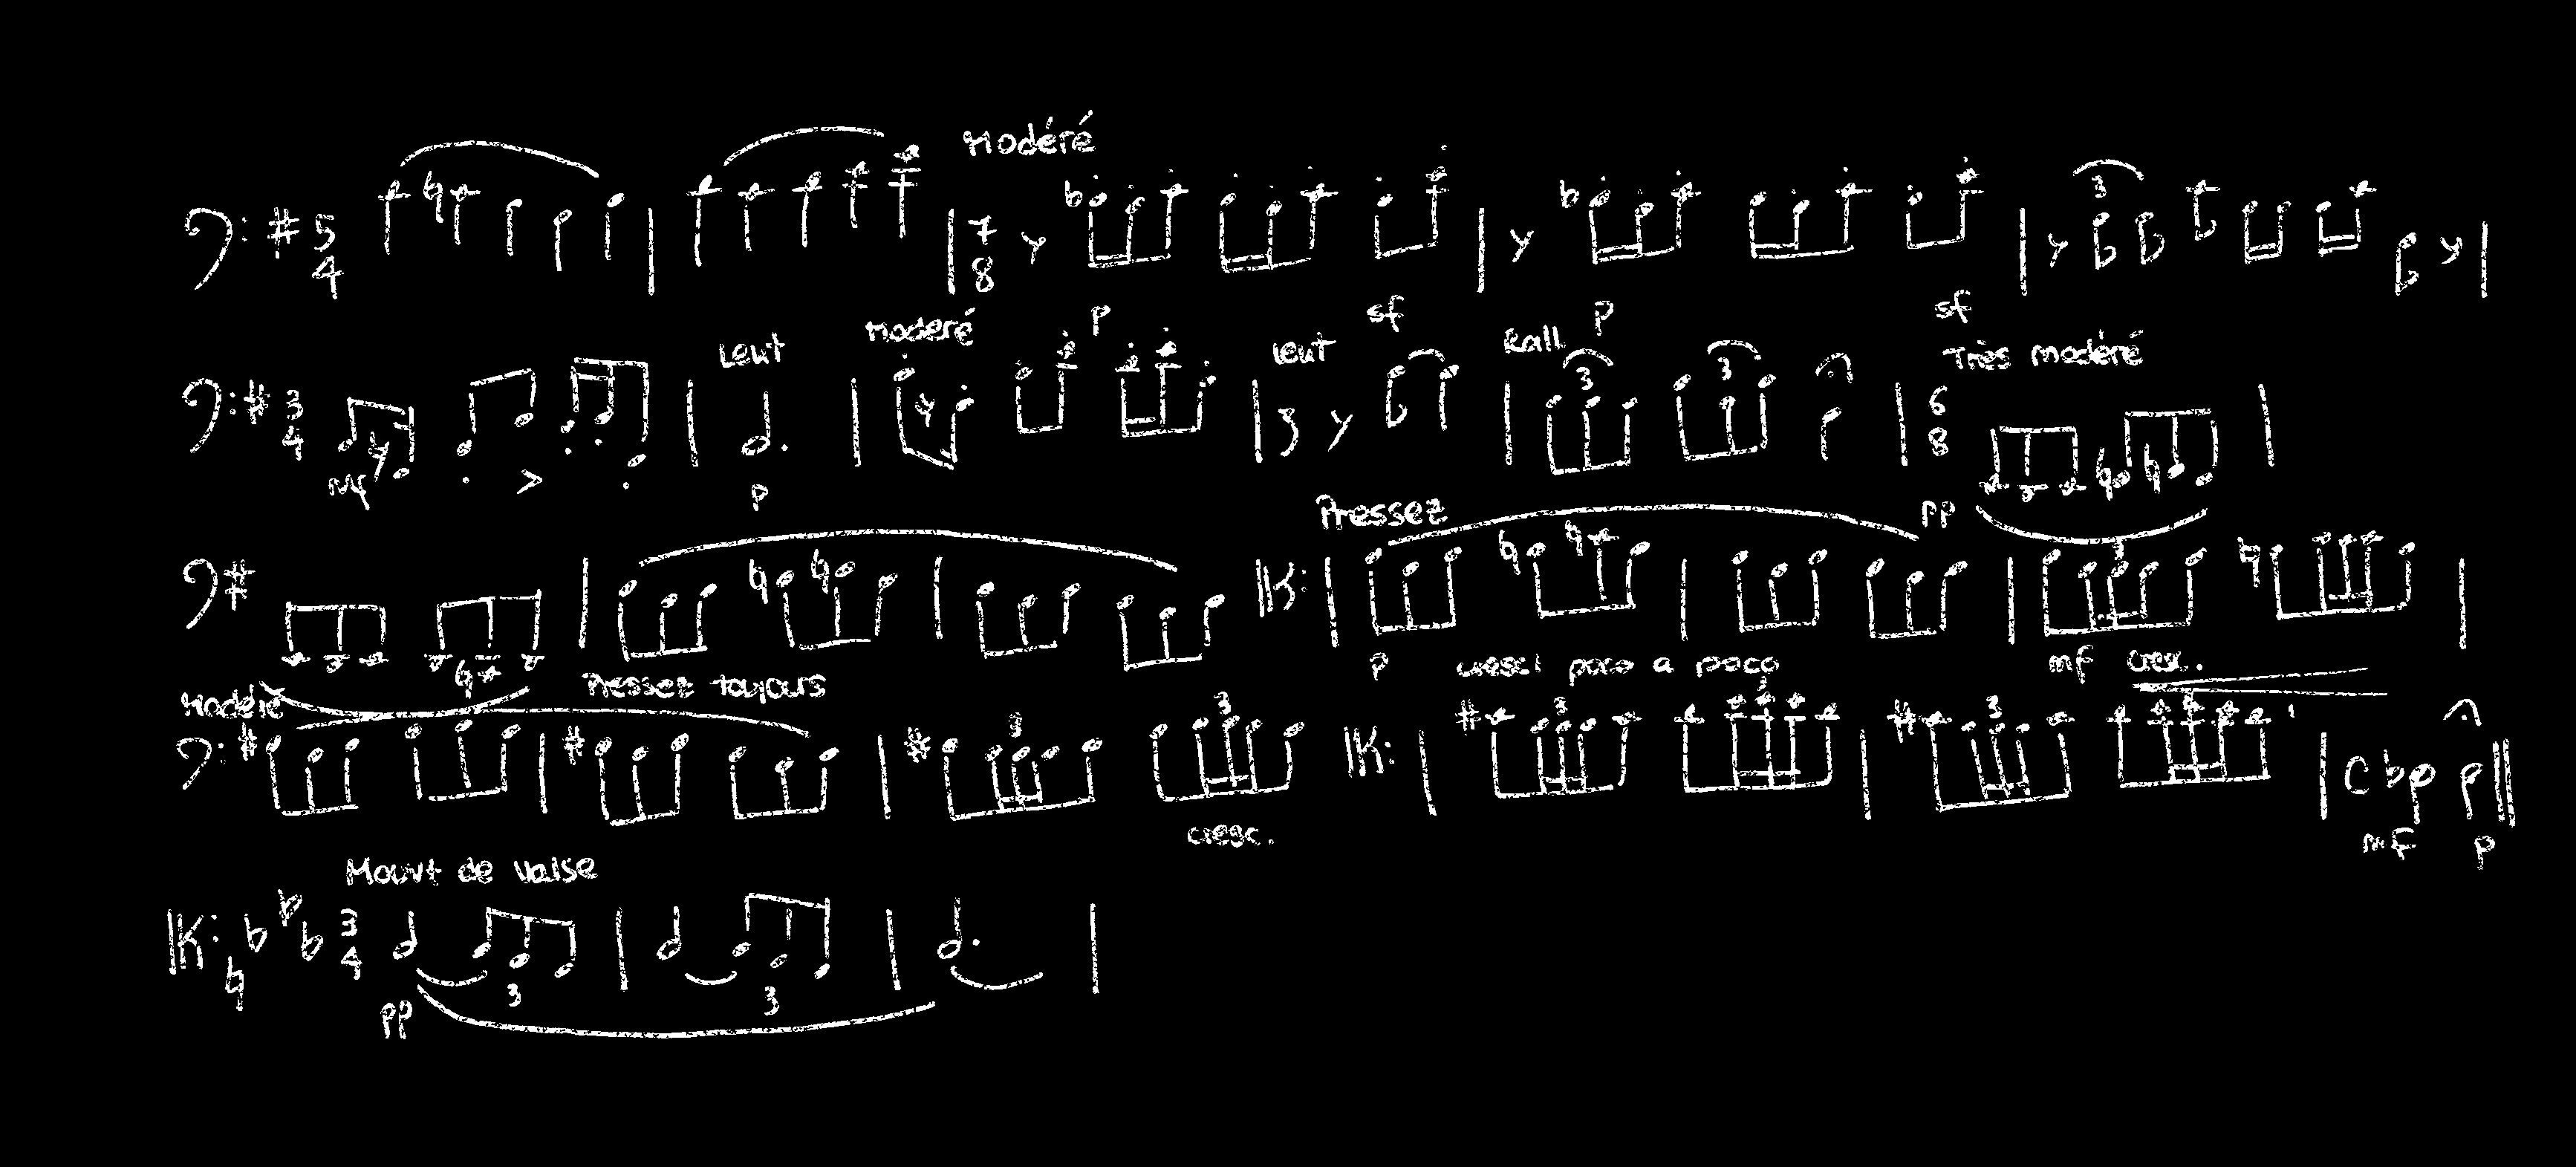 Modéré
5 4 7 8 3
p sf p sf
Lent Moderé Lent Rall Très modéré
3 4 3 3 6 8
mf p pp
Pressez
3
p cresc poco a poco mf cresc.
Modéré Pressez toujours
3 3 3 3 3 3
C
cresc. mf p
Mouvt de valse
3 4
3 3
pp